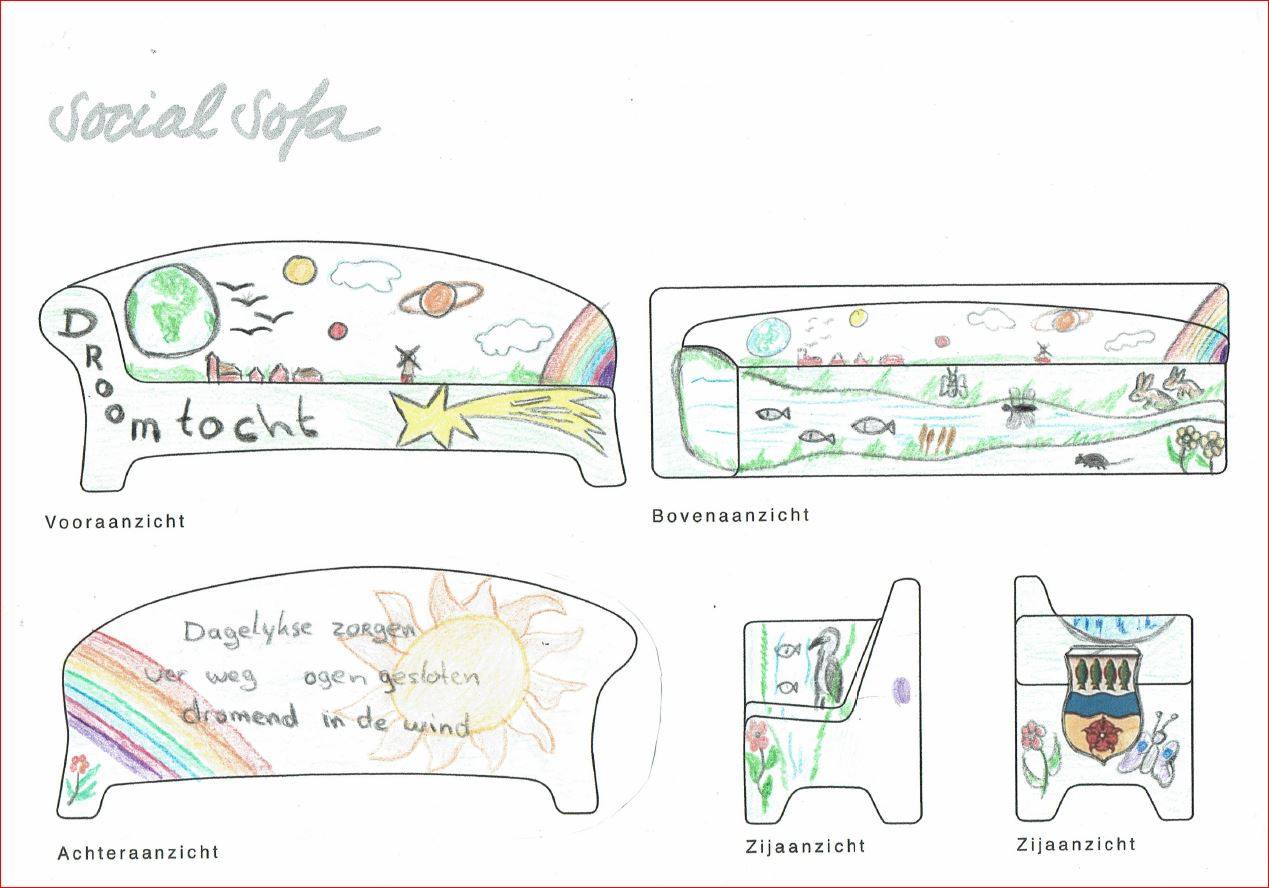 Social Sofa
Droom tocht
Vooraanzicht
Bovenaanzicht
Dagelykse zorgen
ver weg ogen gesloten
dromend in de wind
Achteraanzicht
Zijaanzicht
Zijaanzicht